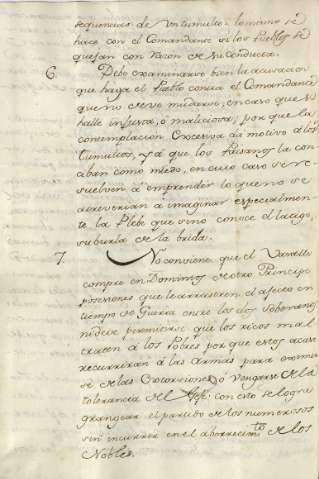 sequencias de Untumulto. lo mismo se
hace con el Comandante si los Pueblos se
quejan con razon de su Conducta.
6. Debe examinarse bien la acusacion
que haga el Pueblo contra el Comandante
que no deve mudarse, en caso que se
halle injusta, ó maliciosa, por que la
contemplacion Excesiva da motivo á los
tumultos, y á que los Paisanos la
aban como miedo, en cuio caso se re
suelven á emprender lo que no se
atreverian á imaginar especialmen
te la Plebe que sino conoce el latigo,
se burla de la brida.
7. No conviene que el Vasallo
compre en Dominios de otro Principe
posesiones que le arrastren el afecto en
tiempo de Guerra entre los dos Soberanos
ni deve permitirse que los ricos mal
traten á los Pobres por que estos acaso
recurriran á las Armas para eximir
se de las Extorsiones, ó Vengarse de la
tolerancia del Gefe: con esto se logra
grangear el partido de los numerosos
sin incurrir en el aborrecim.to de los
Nobles.